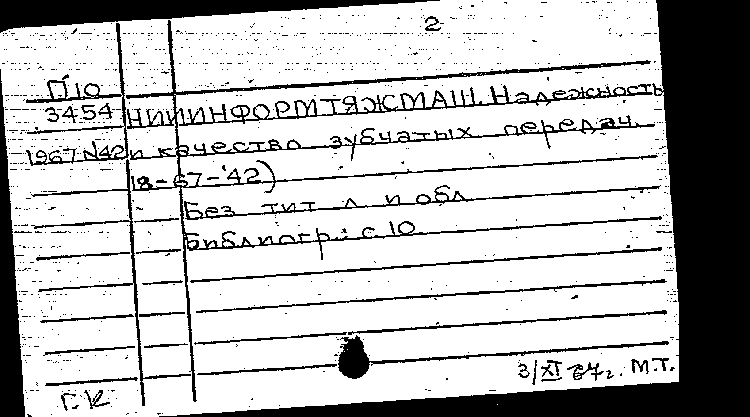 2
П10
3454 НИИИНФОРМТЯЖМАШ. Надежность
1967 N42 и качество зубчатых передач.
18-67-42)
Без тит л и обл
Библиогр.: с 10
3/XI 67г. М.Т.
Г.К